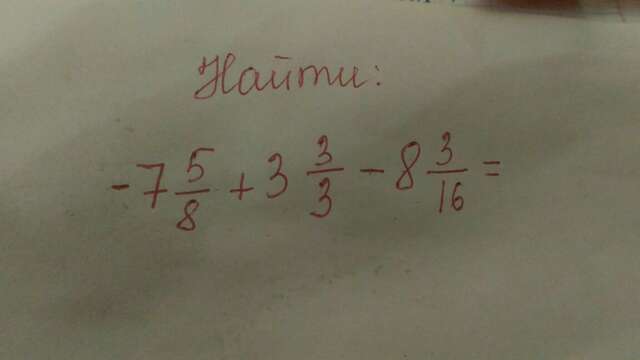 Найти:
-7 5/8 + 3 3/3 - 8 3/16 =